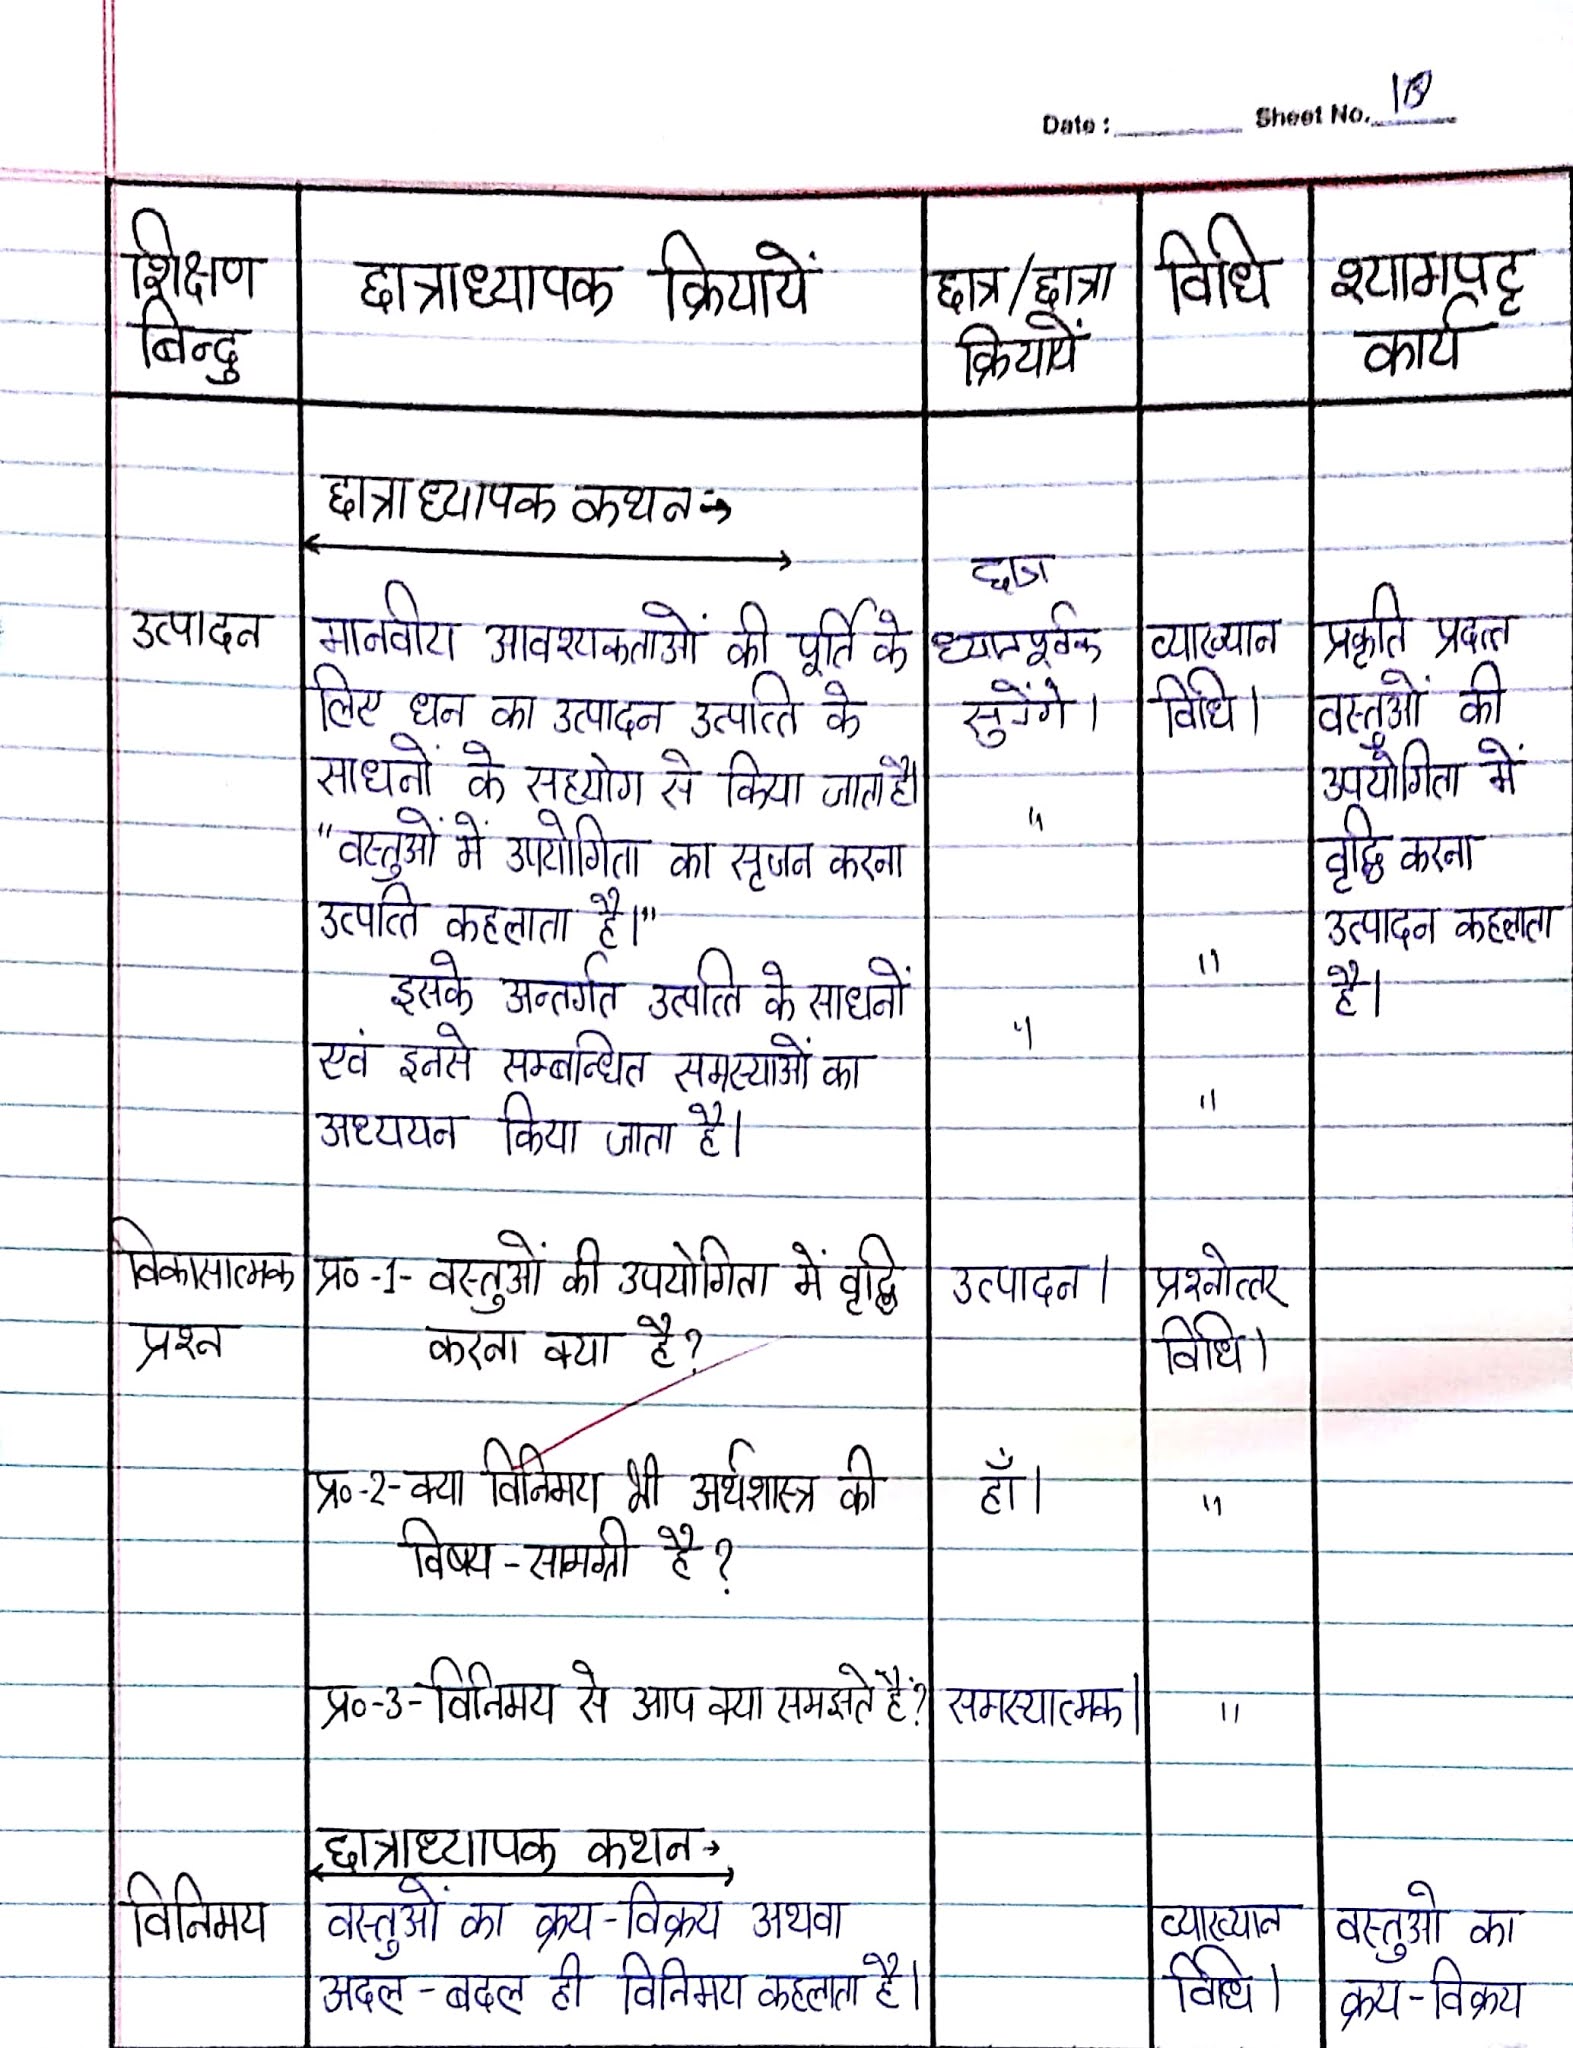 Date : Sheet No.
शिक्षण
बिन्दु
छात्राध्यापक क्रियायें
छात्र/छात्रा
क्रियायें
विधि
श्यामपट्ट
कार्य
छात्राध्यापक कथन→
उत्पादन
मानवीय आवश्यकताओं की पूर्ति के
लिए धन का उत्पादन उत्पत्ति के
साधनों के सहयोग से किया जाता है।
"वस्तुओं में उपयोगिता का सृजन करना
उत्पत्ति कहलाता है।"
इसके अन्तर्गत उत्पत्ति के साधनों
एवं इनसे सम्बन्धित समस्याओं का
अध्ययन किया जाता है।
छात्र
ध्यानपूर्वक
सुनेंगे।
"
"
व्याख्यान
विधि।
"
"
प्रकृति प्रदत्त
वस्तुओं की
उपयोगिता में
वृद्धि करना
उत्पादन कहलाता
है।
विकासात्मक
प्रश्न
प्र०-1- वस्तुओं की उपयोगिता में वृद्धि
करना क्या है?
उत्पादन।
प्रश्नोत्तर
विधि।
प्र०-2- क्या विनिमय भी अर्थशास्त्र की
विषय-सामग्री है?
हाँ।
"
प्र०-3- विनिमय से आप क्या समझते हैं?
समस्यात्मक।
"
छात्राध्यापक कथन→
विनिमय
वस्तुओं का क्रय-विक्रय अथवा
अदल-बदल ही विनिमय कहलाता है।
व्याख्यान
विधि।
वस्तुओ का
क्रय-विक्रय